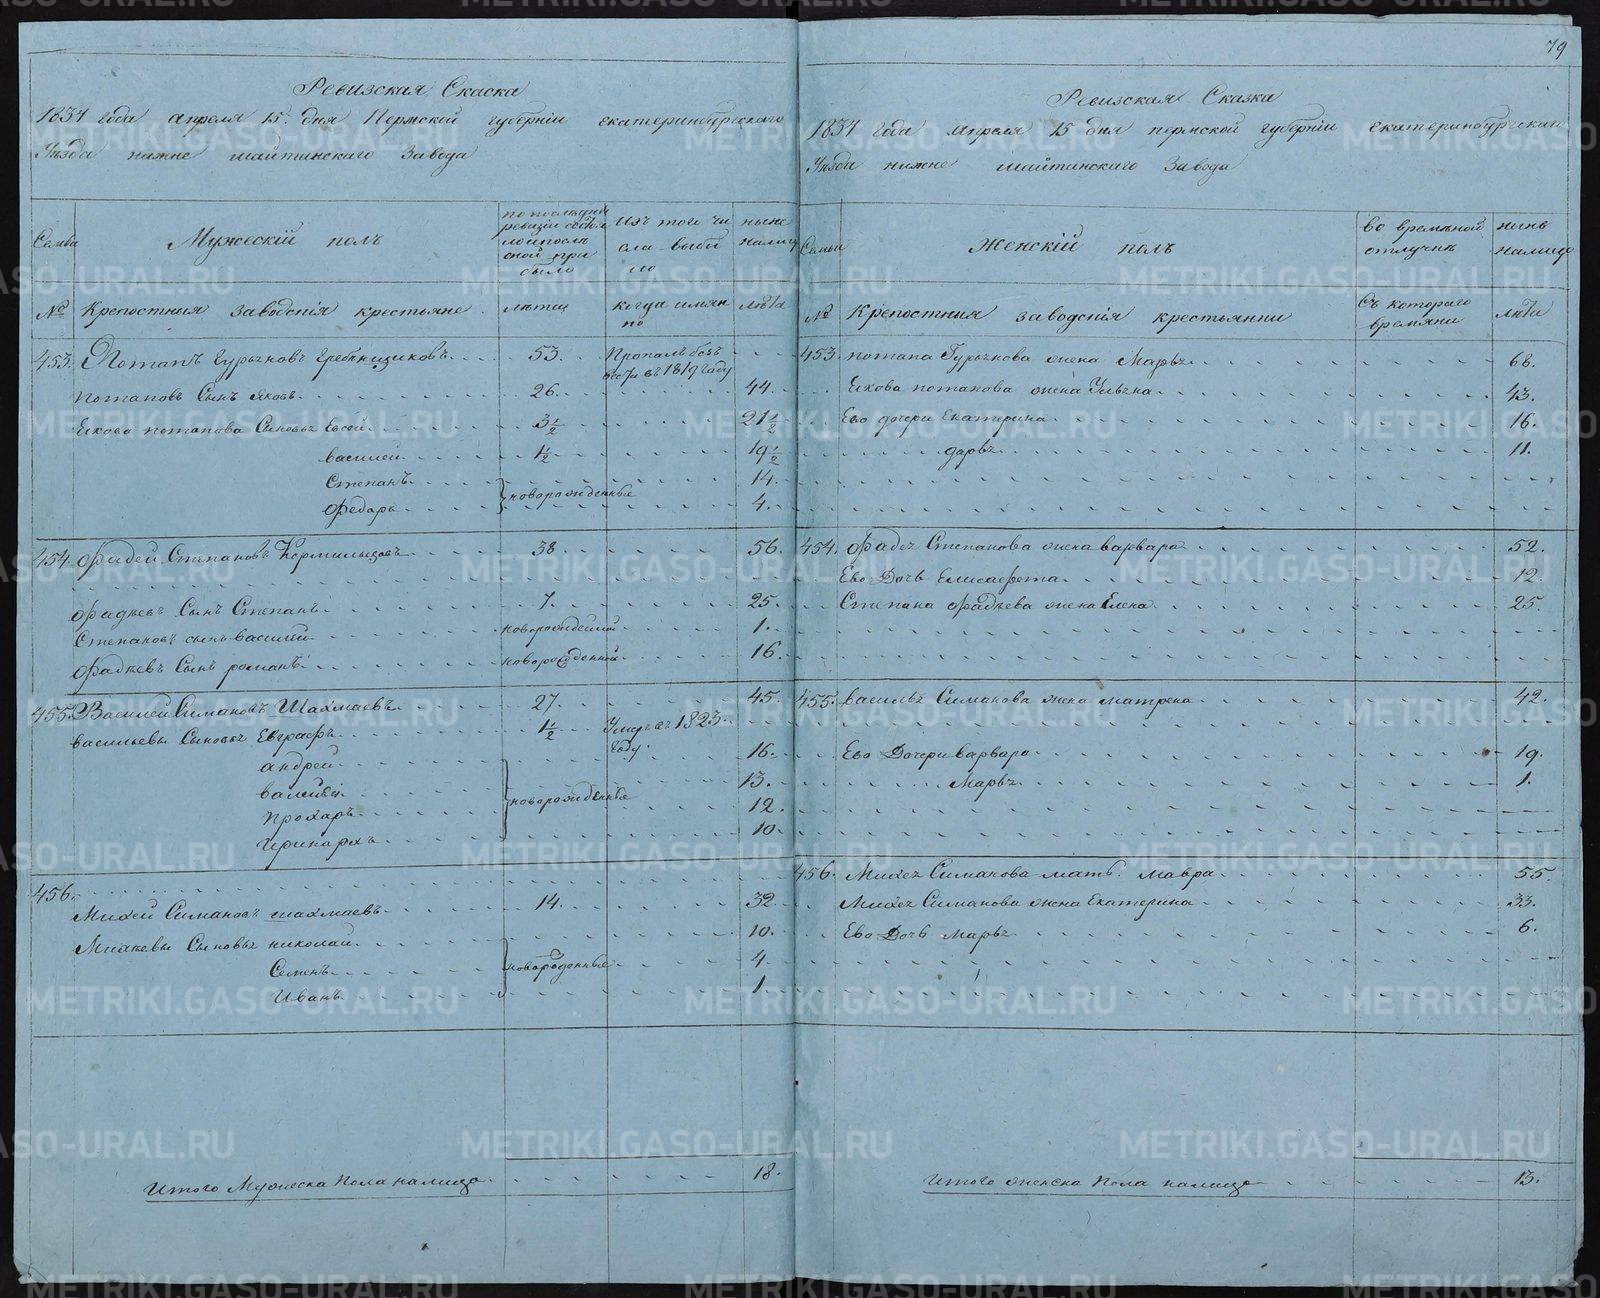 79
Ревизская Скаска
1834 года апреля 15. дня Пермской губернiи екатеринбургскаго
Уезда нижне шайтанскаго Завода
Семьи
Мужескiй полъ
по последней
ревизiи состоя
ло и после
оной при
было
Изъ того чи
сла выбы
ло
ныне
налицо
№
Крепостныя заводскiя крестьяне
лета
когда имян
но
лета
453. Потапъ Гурьяновъ Гребенщиковъ 53. Пропалъ безъ
вести въ 1819 году
Потаповъ Сынъ Яковъ 26. 44.
Якова потапова Сыновья Евсей 3½ 21½
василей 1½ 19½
Степанъ 14.
новорожденные
Федоръ 4.
454. Фадей Степановъ Кормильцовъ 38 56.
Фадеевъ Сынъ Степанъ 7. 25.
Степановъ сынъ василей новорожденный 1.
Фадеевъ Сынъ романъ новорожденной 16.
455. Василей Симановъ Шахмаевъ 27. 45.
васильевы Сыновья Евграфъ 1½ Умеръ въ 1823.
году.
андрей 16.
валей 13.
новорожденные
Прохоръ 12.
Иринархъ 10.
456.
Михей Симановъ шахмаевъ 14. 32.
Михеевы Сыновья николай 10.
Семенъ новорожденные 4
Иванъ 1
Итого Мужеска Пола налицо 18.
Ревизская Сказка
1834 года апреля 15 дня пермской губернiи екатеринбургскаго
Уезда нижне шайтанскаго Завода
Семьи
Женскiй полъ
во временной
отлучке
ныне
налицо
№
Крепостныя заводскiя крестьянки
Съ котораго
времяни
лета
453. потапа Гурьянова жена Марья 68.
Якова потапова жена Ульяна 43.
Ево дочери Екатерина 16.
дарья 11.
454. Фадея Степанова жена варвара 52.
Ево Дочь Елисавета 12.
Степана Фадеева жена Елена 25.
455. василья Симанова жена матрена 42.
Ево Дочери варвара 19.
Марья 1.
456. Михея Симанова мать мавра 55.
Михея Симанова жена Екатерина 33.
Ево Дочь Марья 6.
Итого женска Пола налицо 13.
METRIKI.GASO-URAL.RU